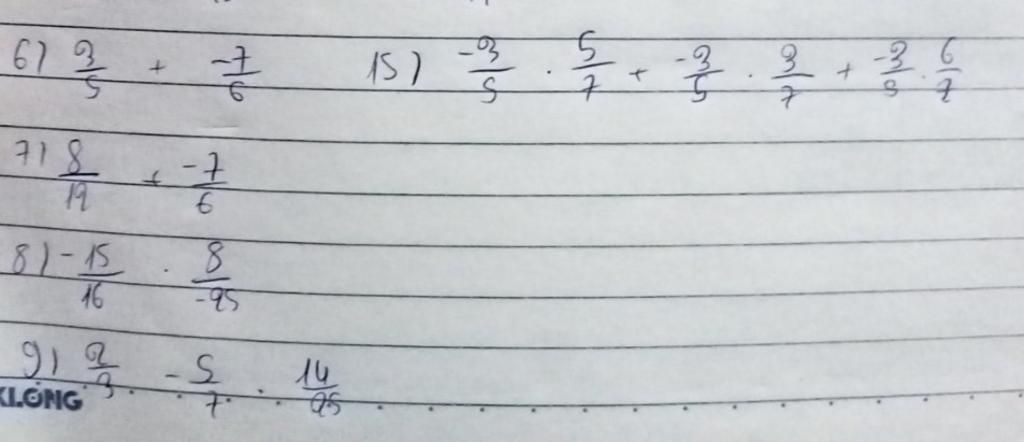 6) 3/5 + -7/6 15) -3/5 . 5/7 + -3/5 . 3/7 + -3/5 . 6/7
7) 8/19 + -7/6
8) -15/16 . 8/-25
9) 2/3 - 5/7 . 14/25
KLONG